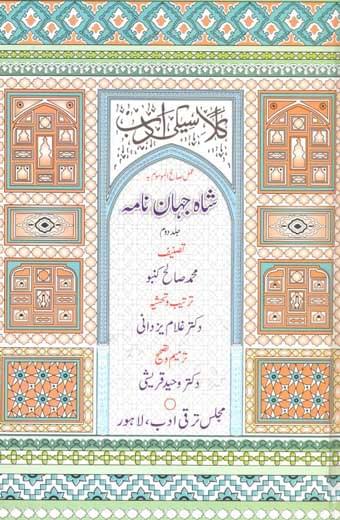 کلاسیکی ادب
عمل صالح الموسوم بہ
شاہ جہان نامہ
جلد دوم
تصنیف
محمد صالح کنبو
ترتیب و تحشیہ
دکتر غلام یزدانی
ترمیم و تصحیح
دکتر وحید قریشی
مجلس ترقی ادب، لاہور